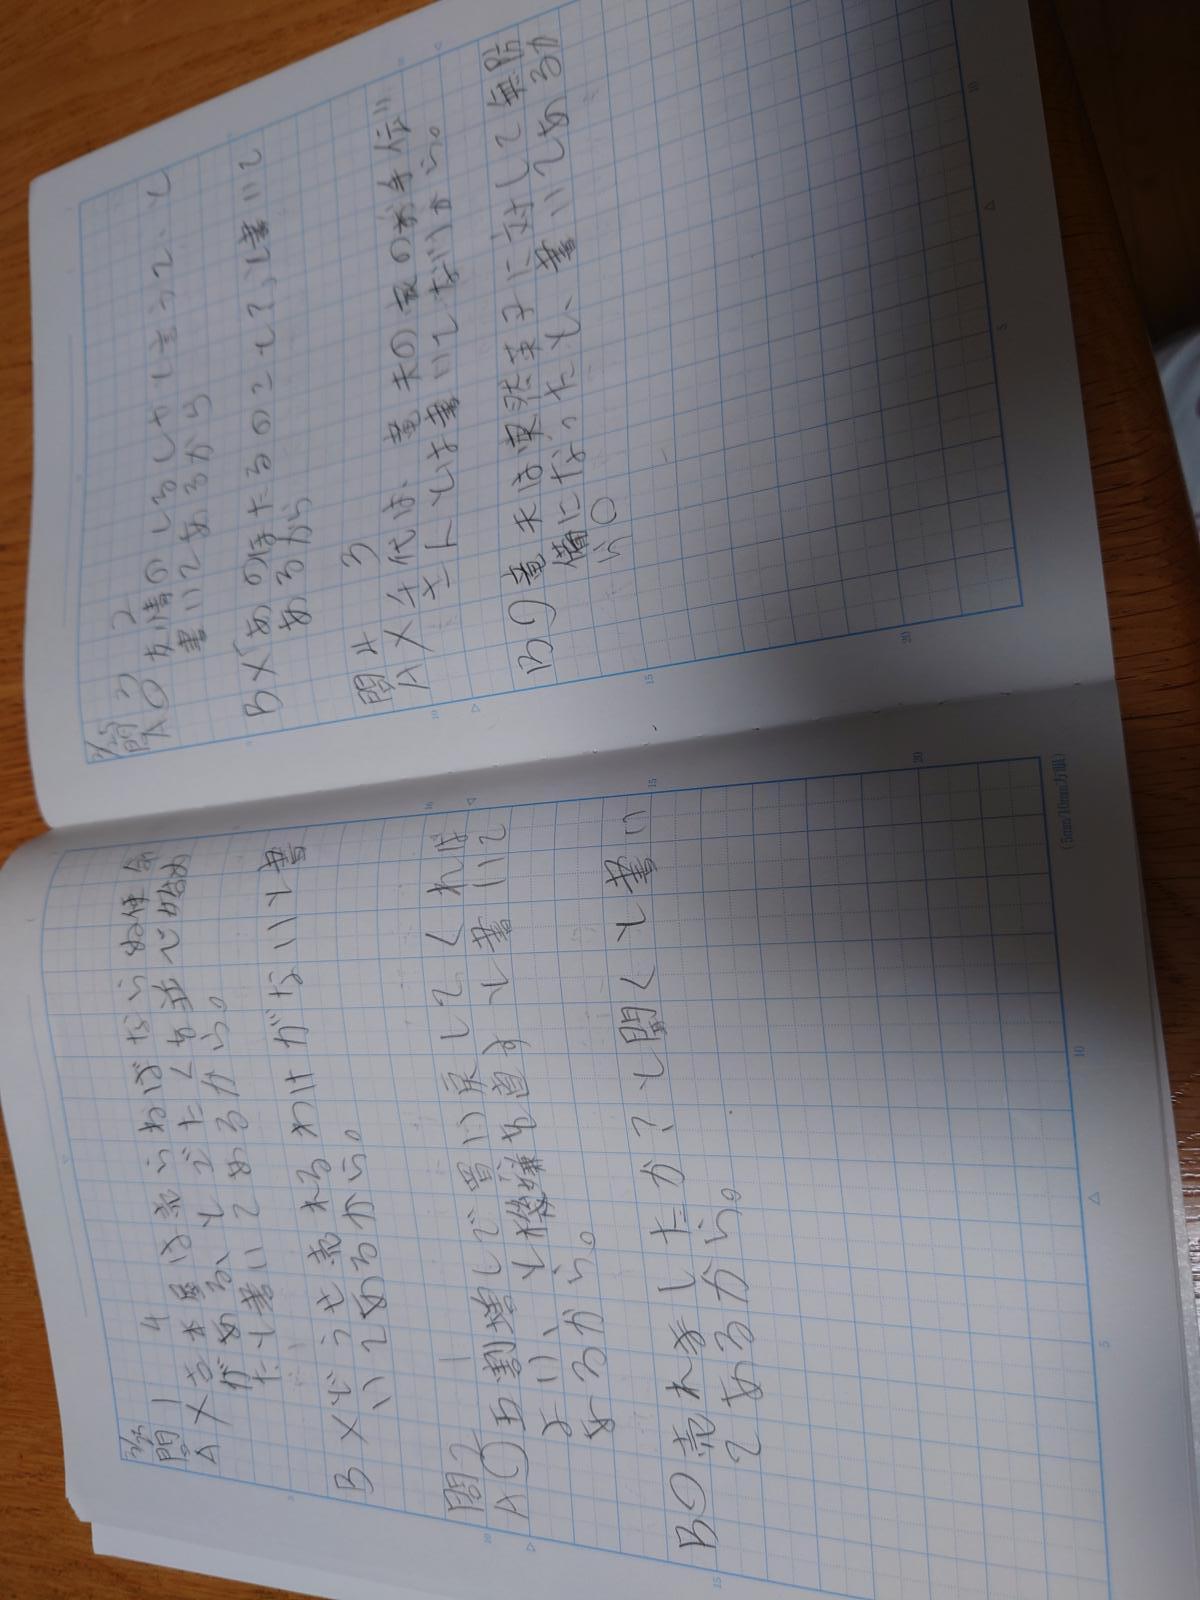 3/25
問1 4
A×古本屋は売らねばならぬ使命
がある、としでたくを並べ始め
たと書いてあるから。
B×どうせ売れるわけがないと書
いてあるから。
問2 1
A○五割増しで買い戻してくれば
よい、と機嫌を直すと書いて
あるから。
B○売れましたか?と聞くと書い
てあるから。
3/25
問3 2
A○友情のしるしやと言って、と
書いてあるから
B×「あのほたるのこと?」と書いて
あるから
問4 3
A×千代は、竜夫の父のお手伝い
さんとは書いてないから。
B○竜夫は突然英子に対して無防
備になったと、書いてあるか
ら○
5mm/10mm方眼